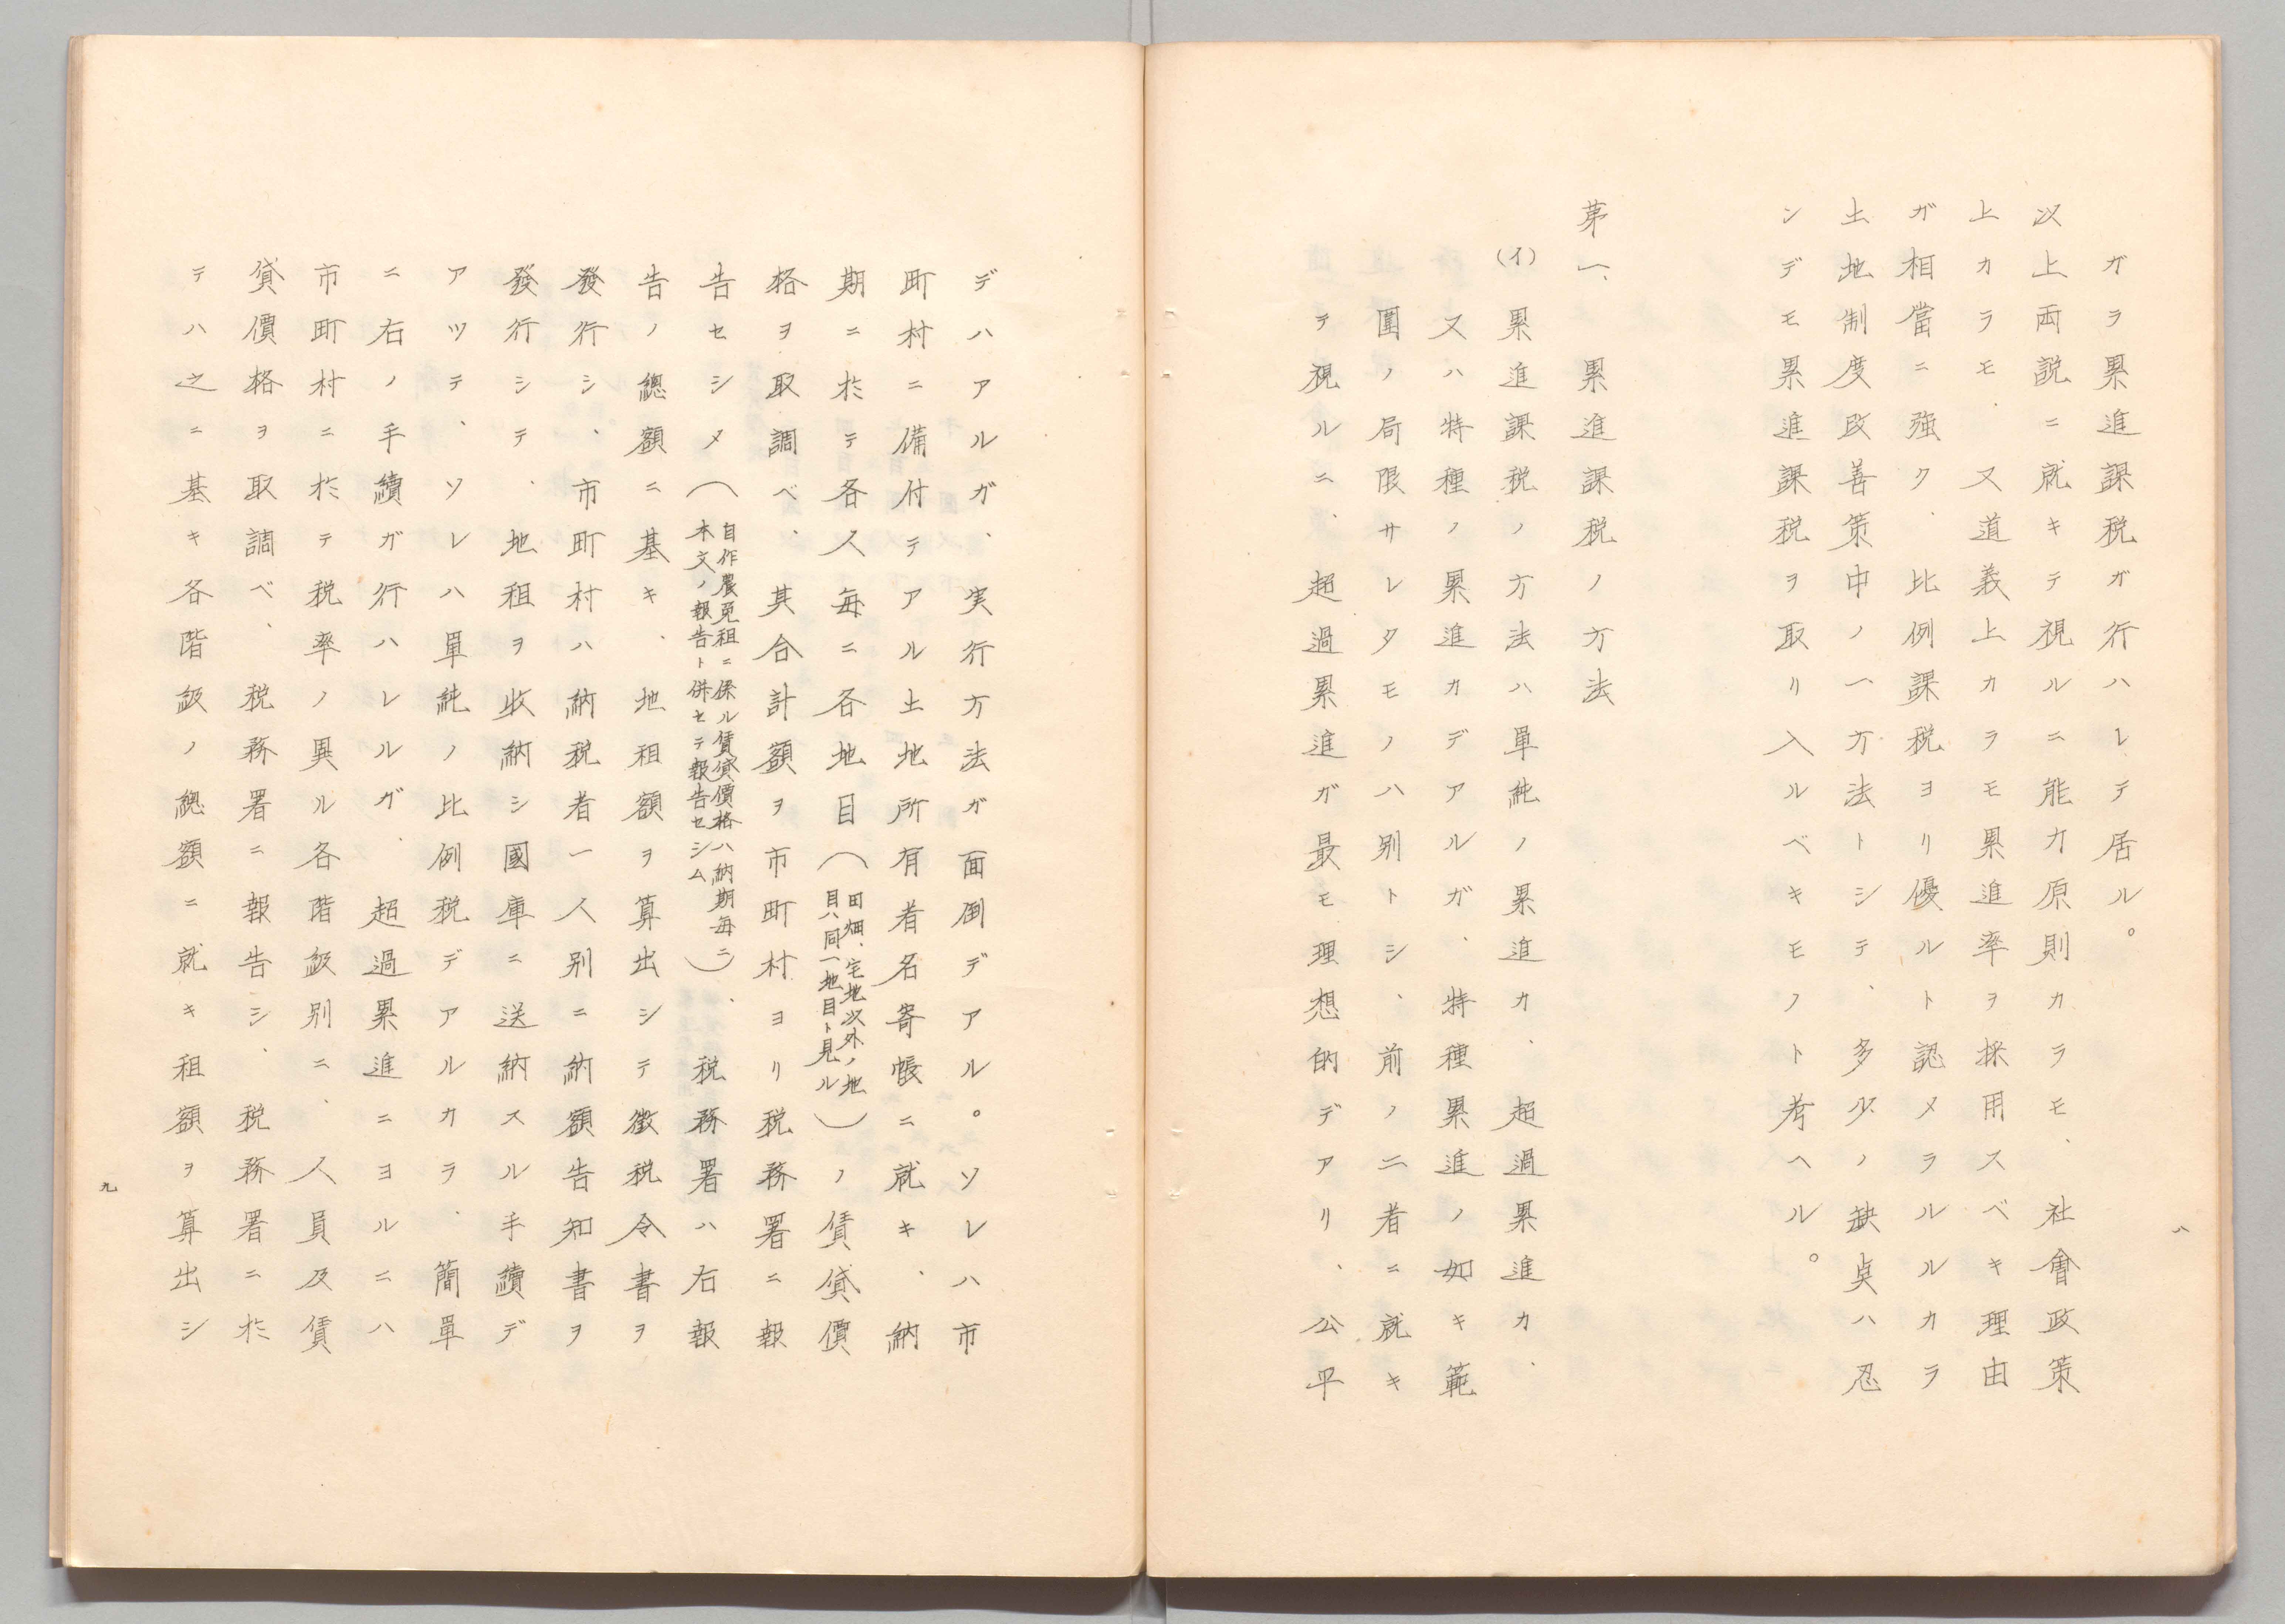 ガラ累進課税ガ行ハレテ居ル。
以上両説ニ就キテ視ルニ能力原則カラモ、社會政策
上カラモ、又道義上カラモ累進率ヲ採用スベキ理由
ガ相當ニ強ク、比例課税ヨリ優ルト認メラルルカラ
土地制度改善策中ノ一方法トシテ、多少ノ缺点ハ忍
ンデモ累進課税ヲ取リ入ルベキモノト考ヘル。
第一、累進課税ノ方法
(イ)累進課税ノ方法ハ單純ノ累進カ、超過累進カ、
又ハ特種ノ累進カデアルガ、特種累進ノ如キ範
圍ノ局限サレタモノハ別トシ、前ノ二者ニ就キ
テ視ルニ、超過累進ガ最モ理想的デアリ、公平
八
デハアルガ、実行方法ガ面倒デアル。ソレハ市
町村ニ備付テアル土地所有者名寄帳ニ就キ、納
期ニ於テ各人毎ニ各地目(田畑、宅地以外ノ地
目ハ同一地目ト見ル)ノ賃貸價
格ヲ取調ベ、其合計額ヲ市町村ヨリ税務署ニ報
告セシメ(自作農免租ニ係ル賃貸價格ハ納期毎ニ
本文ノ報告ト併セテ報告セシム)、税務署ハ右報
告ノ總額ニ基キ、地租額ヲ算出シテ徴税令書ヲ
發行シ、市町村ハ納税者一人別ニ納額告知書ヲ
發行シテ、地租ヲ收納シ國庫ニ送納スル手續デ
アツテ、ソレハ單純ノ比例税デアルカラ、簡單
ニ右ノ手續ガ行ハレルガ、超過累進ニヨルニハ
市町村ニ於テ税率ノ異ル各階級別ニ、人員及賃
貸價格ヲ取調ベ、税務署ニ報告シ、税務署ニ於
テハ之ニ基キ各階級ノ總額ニ就キ租額ヲ算出シ
九